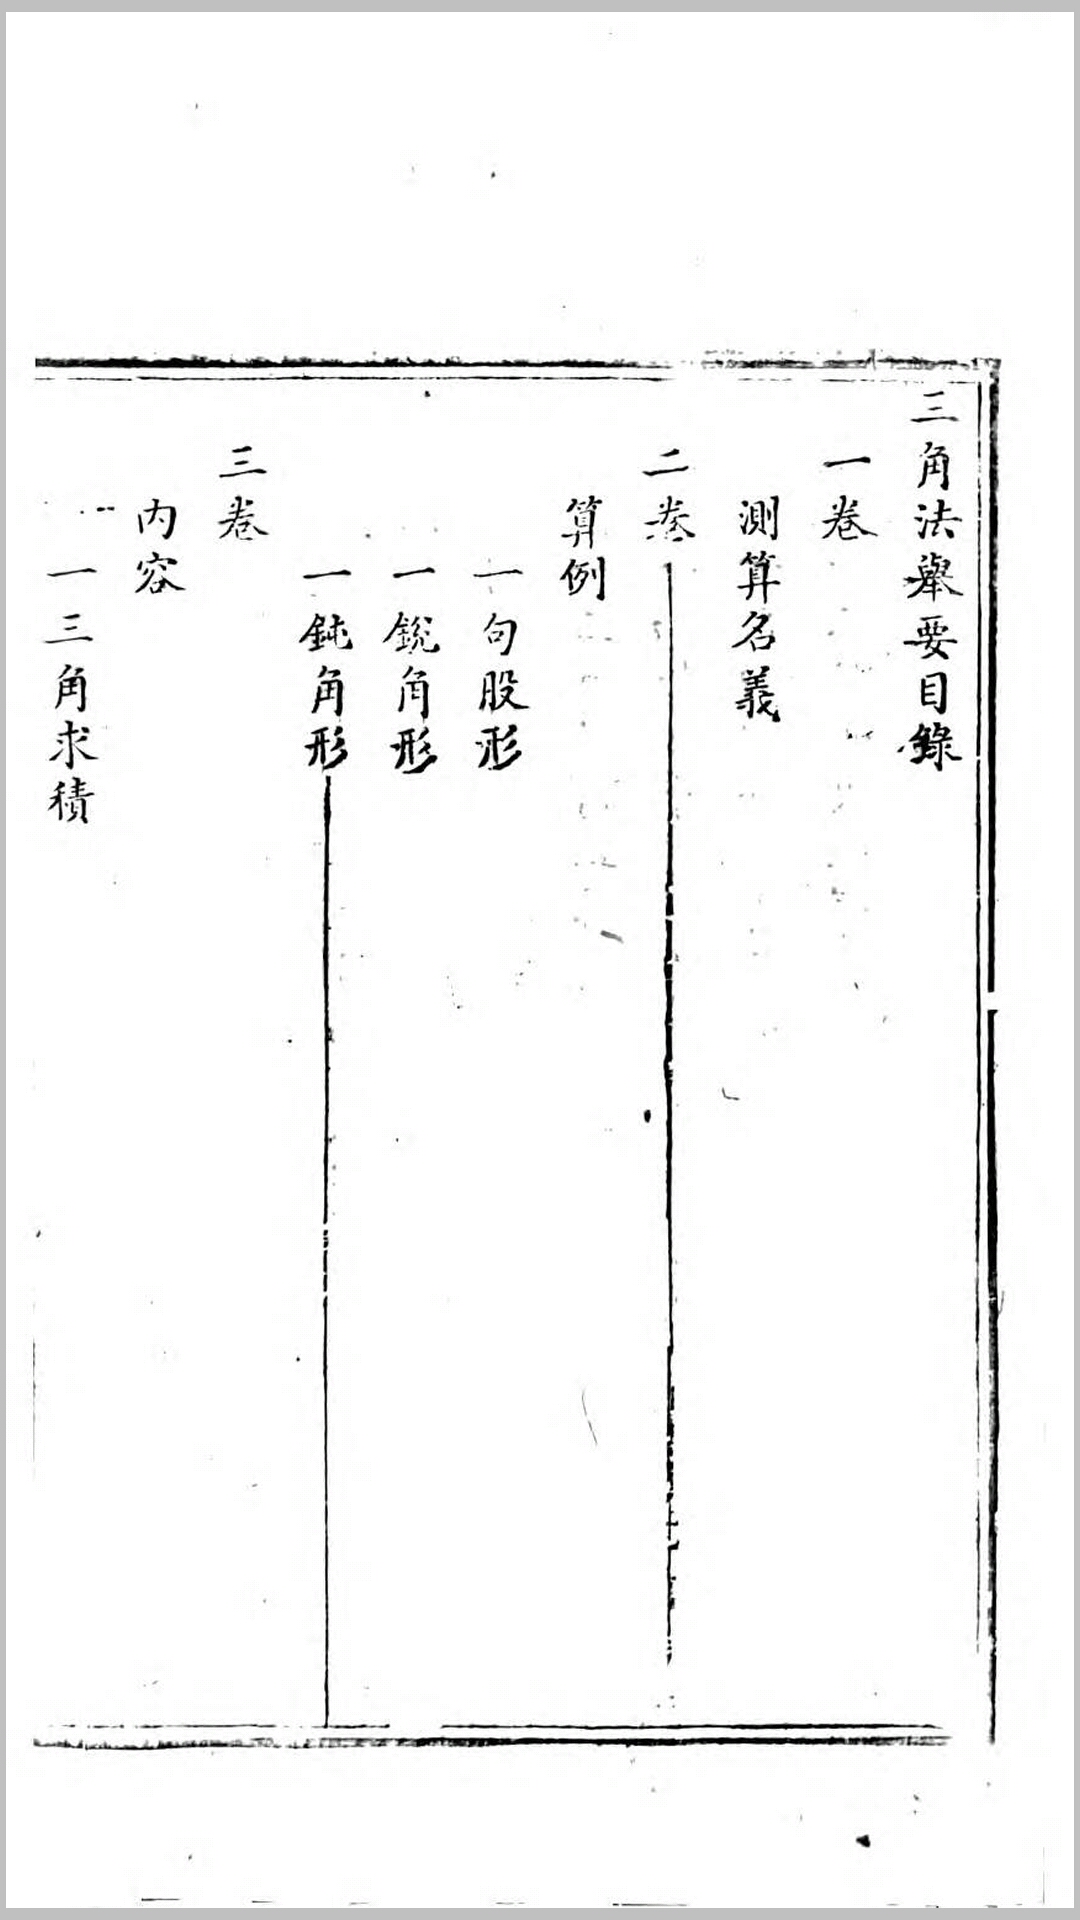 三角法舉要目錄
一卷
測算名義
二卷
算例
一句股形
一銳角形
一鈍角形
三卷
內容
一三角求積